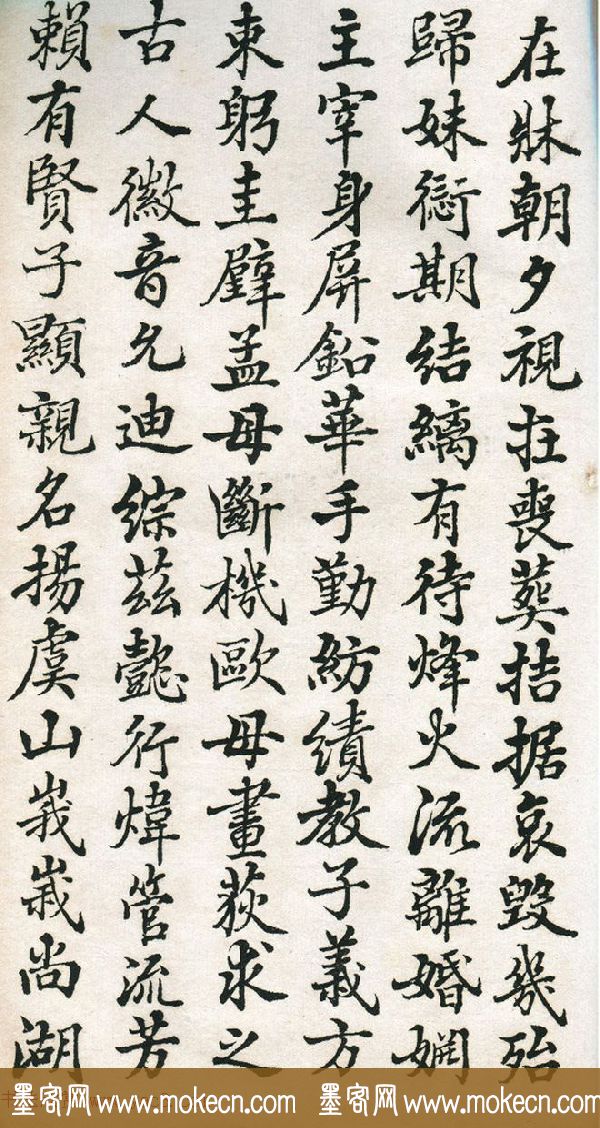 在牀朝夕視在喪葬拮据哀毀幾殆
歸妹愆期結縭有待烽火流離婚姻
主宰身屏鉛華手勤紡績教子義方
束躬圭璧孟母斷機歐母畫荻求之
古人徽音允迪綜茲懿行煒管流芳
賴有賢子顯親名揚虞山峩峩尚湖
墨客网 www.mokecn.com 墨客网 www.mokecn.com